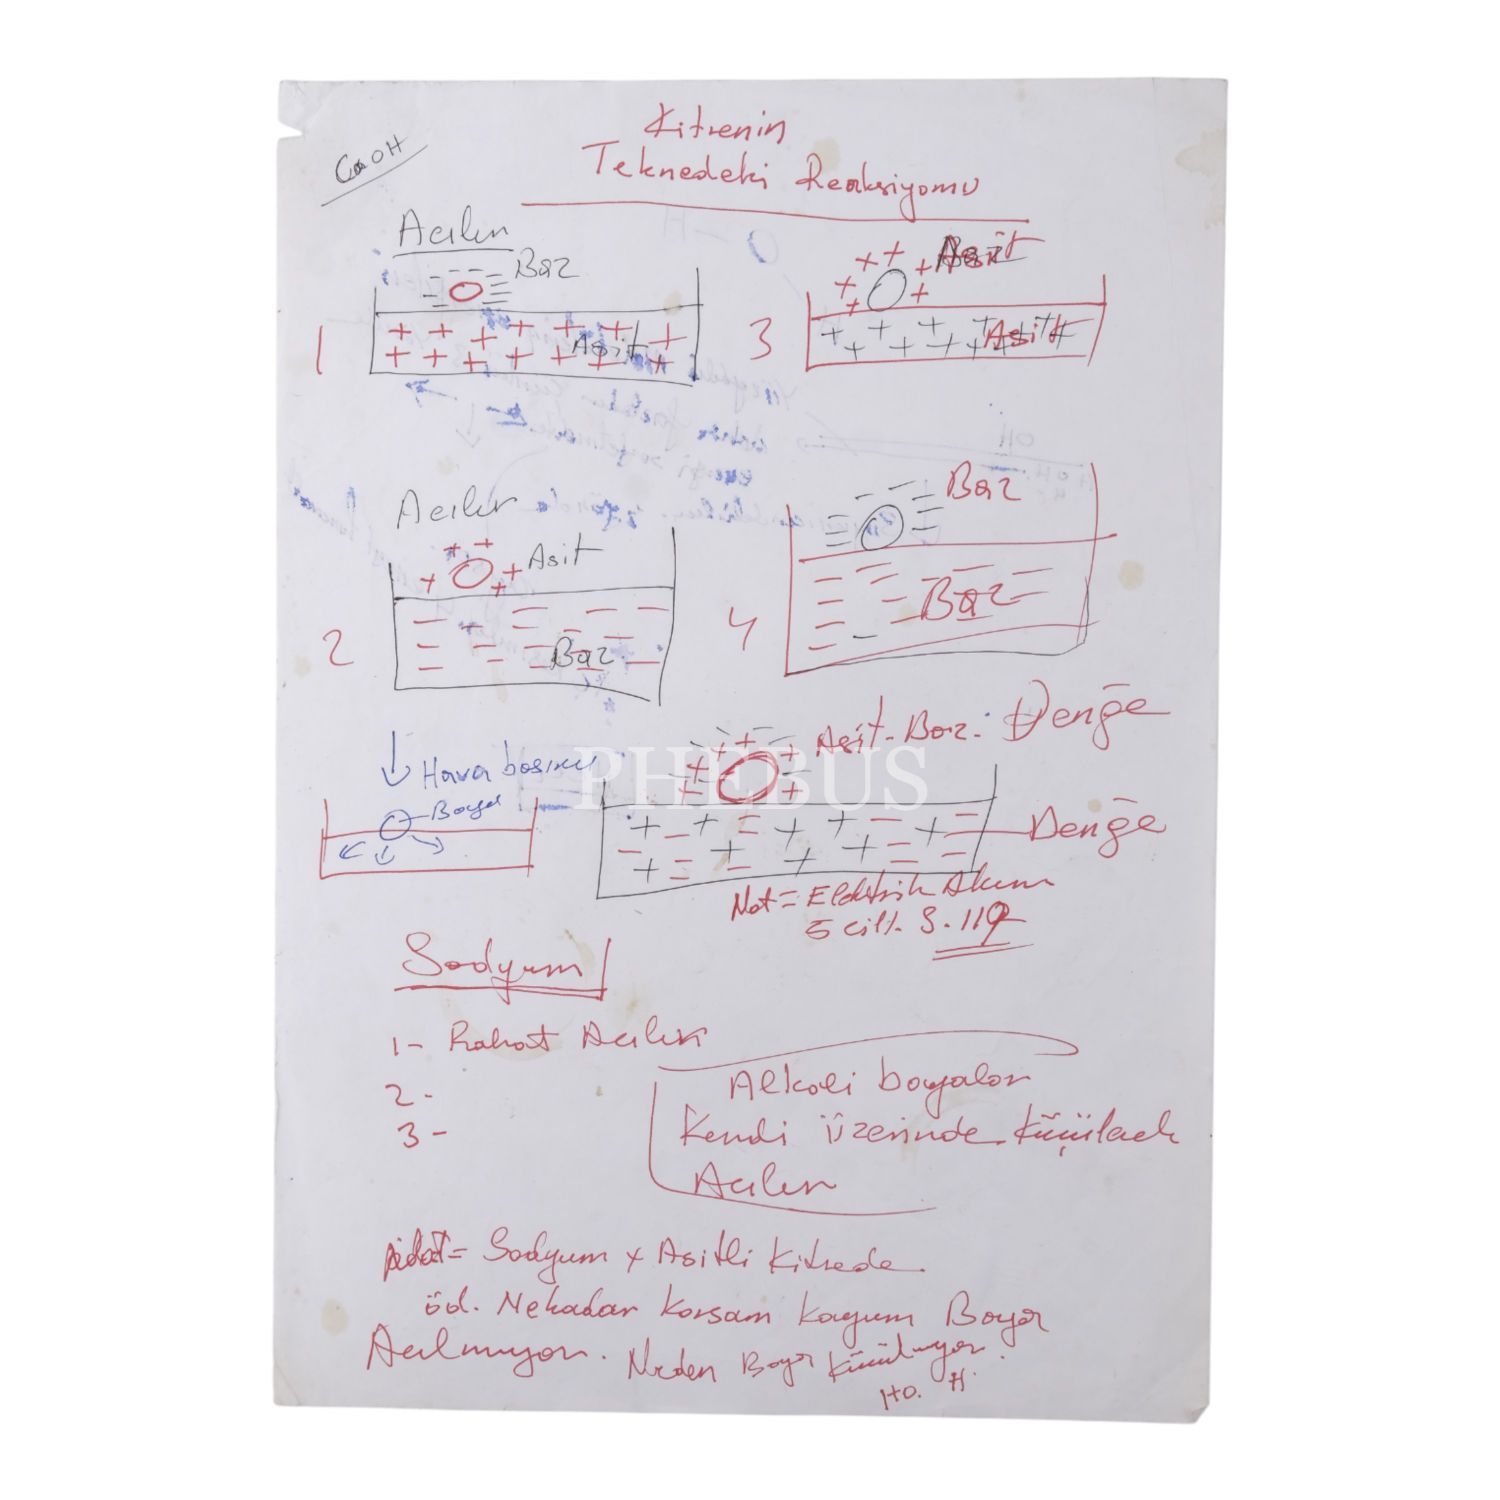 CaOH
Kitrenin
Teknedeki Reaksiyonu
Açılır
Baz
1
Asit
Asit
3
Asit
Açılır
Asit
2
Baz
Baz
4
Baz
Hava basıncı
Boya
Asit-Baz. Denğe
Denğe
Not= Elektrik Akımı
5 cilt. S. 119
PHEBUS
Sodyum
1- Rahat Açılır
2-
3-
Alkali boyalar
Kendi üzerinde küçülerek
Açılır
Sodyum x Asitli Kitrede
öd. Nekadar korsam koyum Boya
Açılmıyor. Neden Boya küçülüyor.
HO. H.